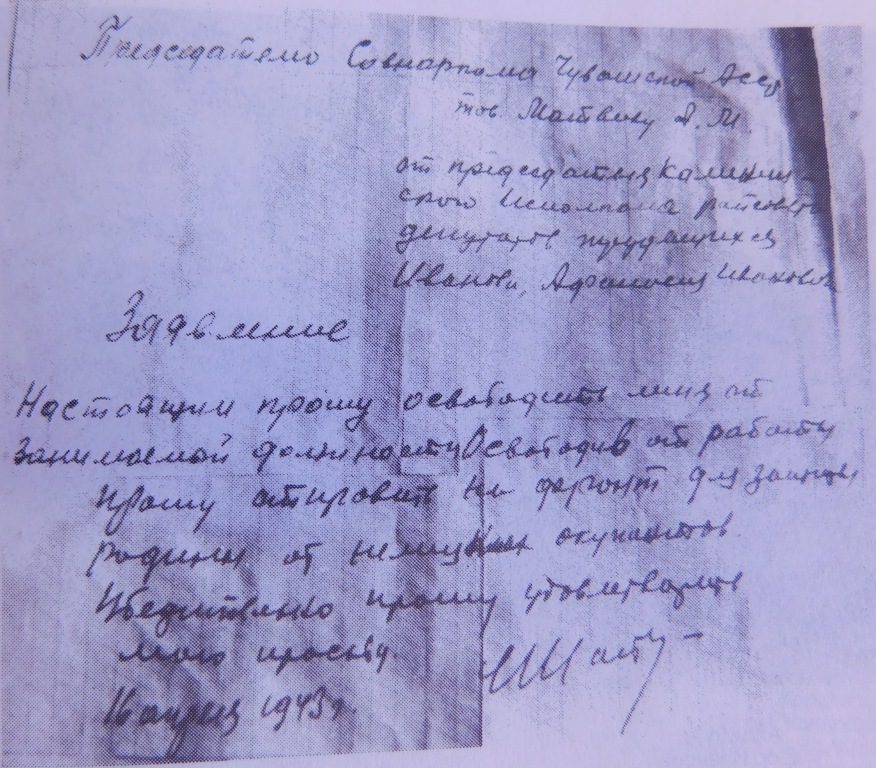 Председателю Совнаркома Чувашской АССР
тов. Матвику А. М.
от председателя Калинин-
ского исполкома райсовета
депутатов трудящихся
Иванова, Афанасия Ивановича
Заявление
Настоящим прошу освободить меня от
занимаемой должности Освободив от работы
прошу отправить на фронт для защиты
родины от немецких окупантов.
Убедительно прошу удовлетворить
мою просьбу.
16 апреля 1943 г.